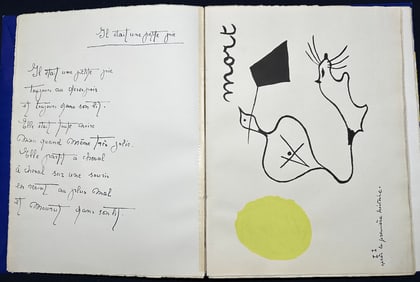 Il était une petite pie
Il était une petite pie
toujours au désespoir
et toujours dans son lit.
Elle était
mais quand même très jolie.
Elle partit à cheval
à cheval sur une souris
en revint au plus mal
et mourut dans son lit.
mort
II
la première histoire.